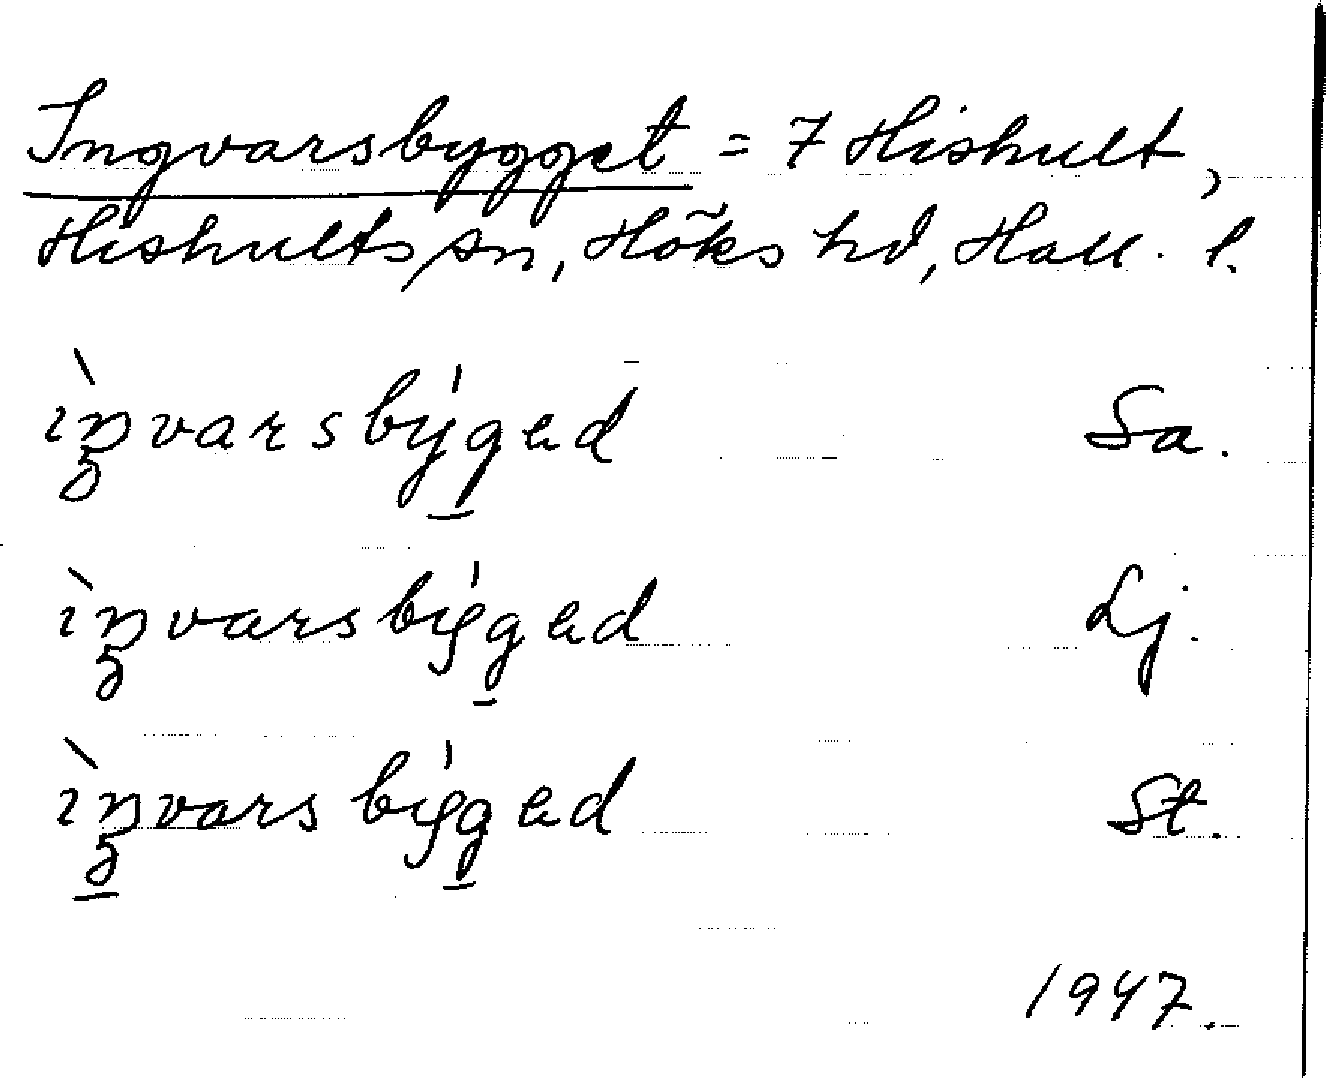 Ingvarsbygget = 7 Hishult,
Hishults sn, Höks hd, Hall. l.
ìŋvarsbýg̱ed Sa.
ìŋvarsbýg̱ed Lj.
ìŋ̱varsbýg̱ed St.
1947.